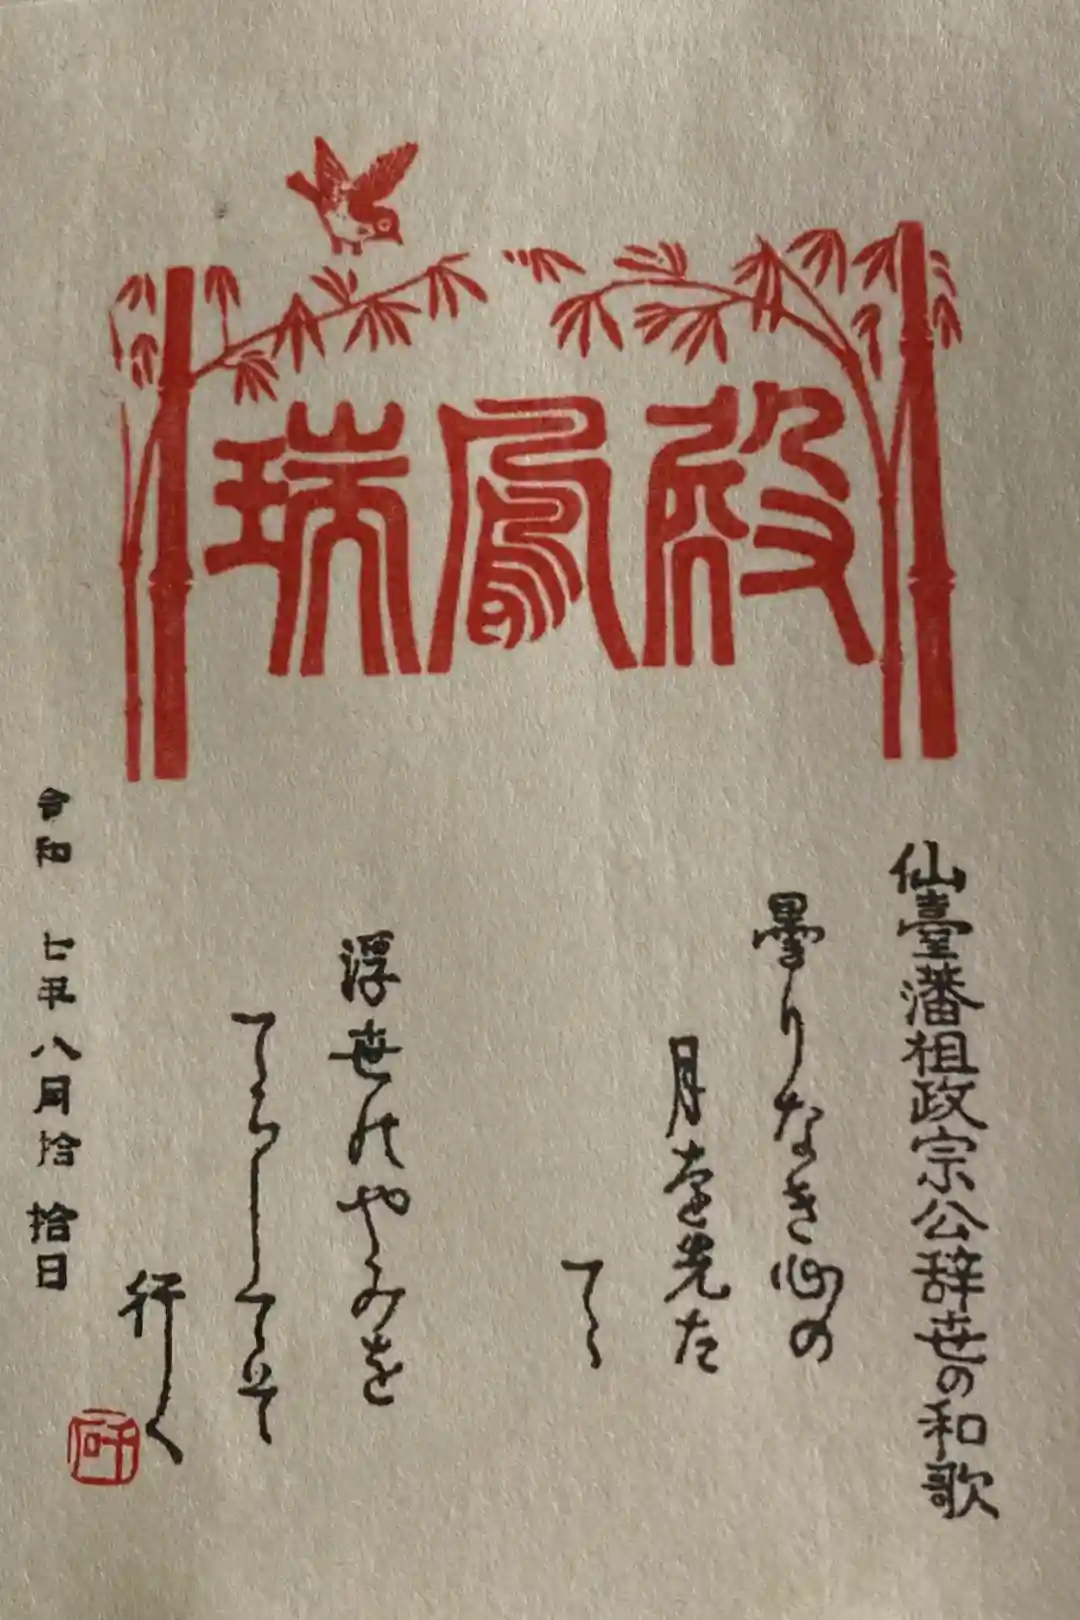 瑞鳳殿
仙臺藩祖政宗公辞世の和歌
曇りなき心の
月を先た
てゝ
浮世のやみを
てらしてそ
行く
令和 七年八月拾 拾日